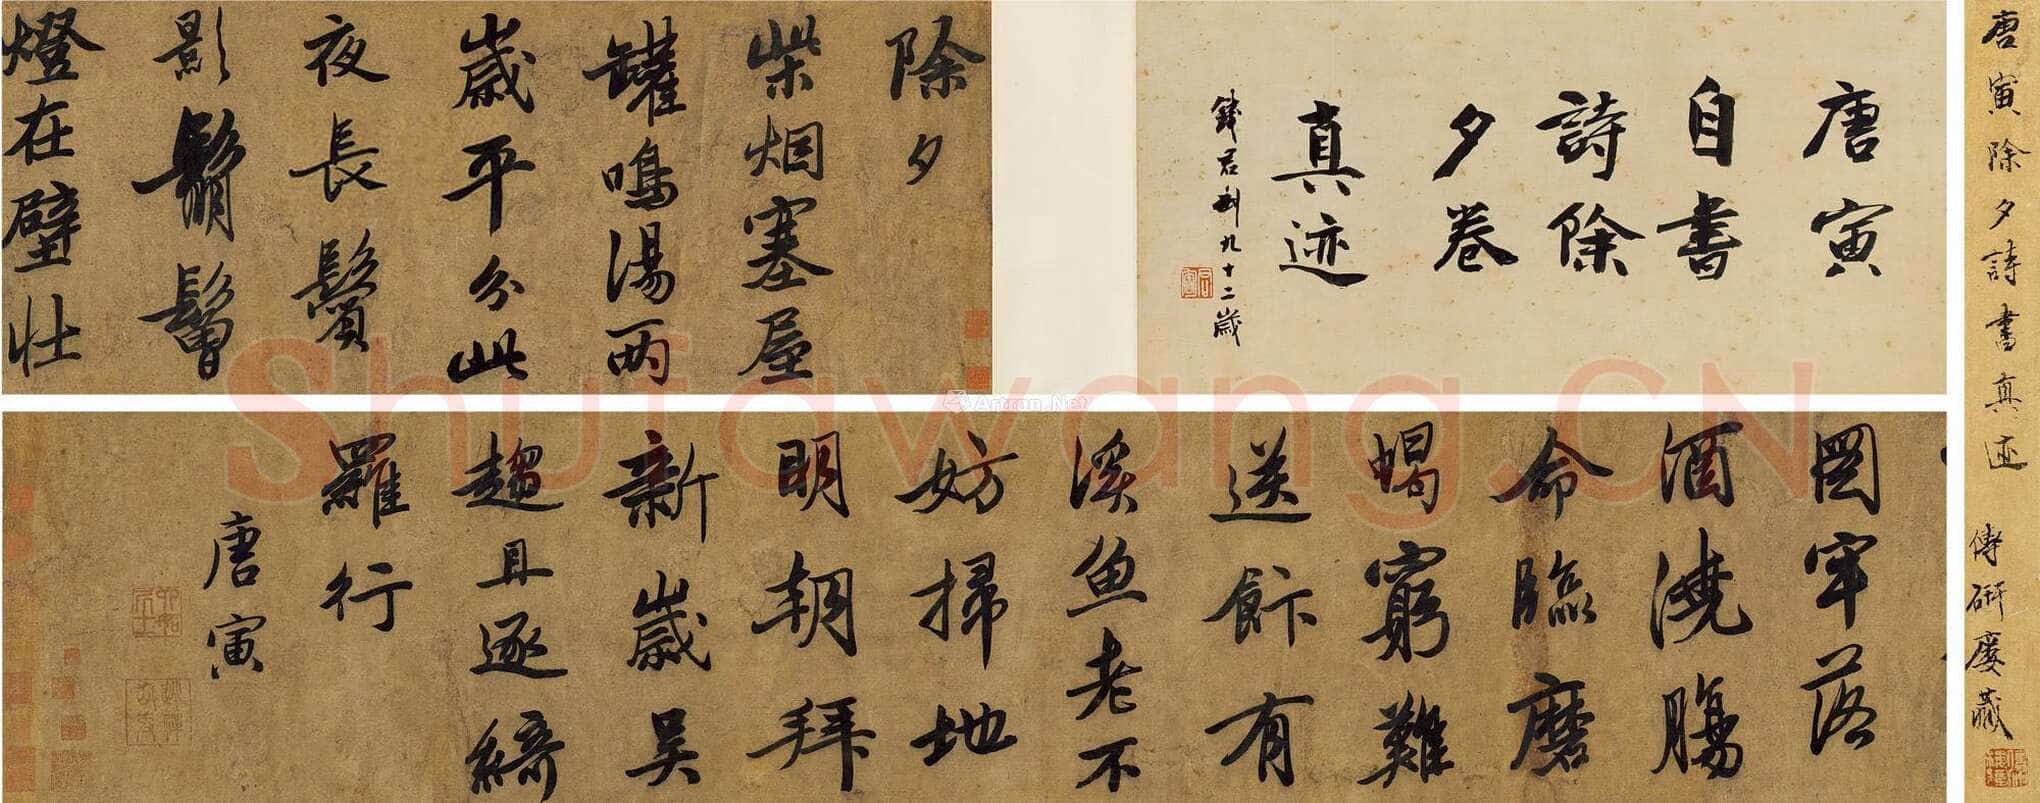 唐寅除夕詩書真迹
傅研慶藏
唐寅
自書
詩除
夕卷
真迹
錢君匋九十二歲
除夕
柴烟塞屋
罐鳴湯兩
歲平分此
夜長鬢
影鬅鬙
燈在壁壮
圖牢落
酒澆腸
命臨磨
蝎窮難
送餘有
溪魚老不
妨掃地
明朝拜
新歲吴
趨且逐綺
羅行
唐寅
Shufawang.CN
Artron.Net